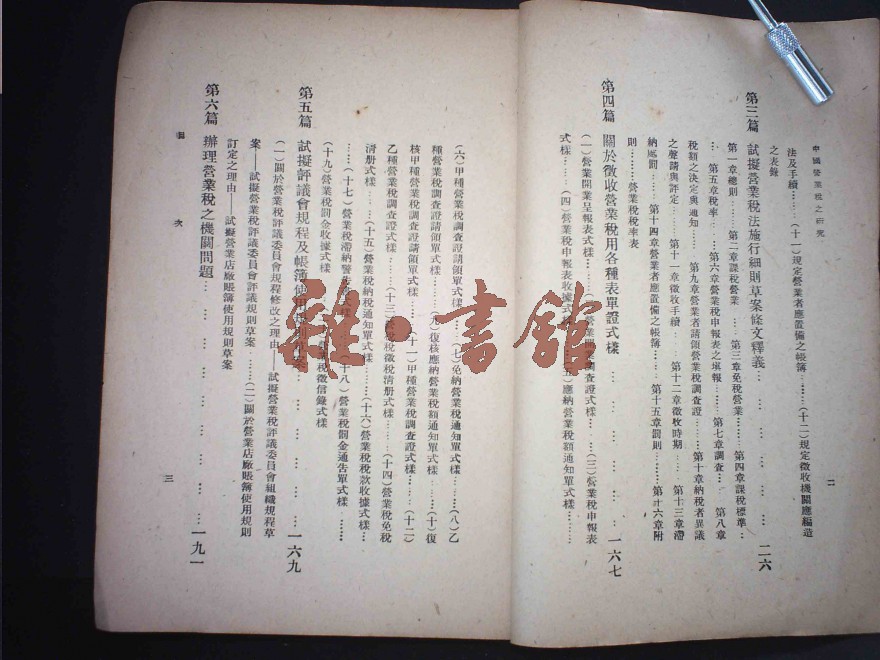 中國營業稅之硏究
二
法及手續………(十一)規定營業者應置備之帳簿………(十二)規定徵收機關應編造
之表錄
第三篇 試擬營業稅法施行細則草案條文釋義………二六
第一章總則………第二章課稅營業………第三章免稅營業………第四章課稅標準…
…第五章稅率………第六章營業稅申報表之填報………第七章調查………第八章
稅額之決定與通知………第九章營業者請領營業稅調查證………第十章納稅者異議
之聲請與評定………第十一章徵收手續………第十二章徵收時期………第十三章滯
納處罰………第十四章營業者應置備之帳簿………第十五章罰則………第十六章附
則………營業稅稅率表
第四篇 關於徵收營業稅用各種表單證式樣………一六七
(一)營業開業呈報表式樣………營業開業調查證式樣………(三)營業稅申報表
式樣………(四)營業稅申報表收據式樣………(五)應納營業稅額通知單式樣………
(六)甲種營業稅調查證請領單式樣………(七)免納營業稅通知單式樣………(八)乙
種營業稅調查證請領單式樣………(九)復核應納營業稅額通知單式樣………(十)復
核甲種營業稅調查證請領單式樣………(十一)甲種營業稅調查證式樣………(十二)
乙種營業稅調查證式樣………(十三)營業稅徵稅清册式樣………(十四)營業稅免稅
清册式樣………(十五)營業稅納稅通知單式樣………(十六)營業稅稅款收據式樣…
……(十七)營業稅滯納警告單式樣………(十八)營業稅罰金通告單式樣………
(十九)營業稅罰金收據式樣………業稅徵信錄式樣
第五篇 試擬評議會規程及帳簿使用規則草案………一六九
(一)關於營業稅評議委員會規程修改之理由——試擬營業稅評議委員會組織規程草
案——試擬營業稅評議委員會評議規則草案………(二)關於營業店廠賬簿使用規則
訂定之理由——試擬營業店廠賬簿使用規則草案
第六篇 辦理營業稅之機關問題………一九一
目 次
三
雜·書館